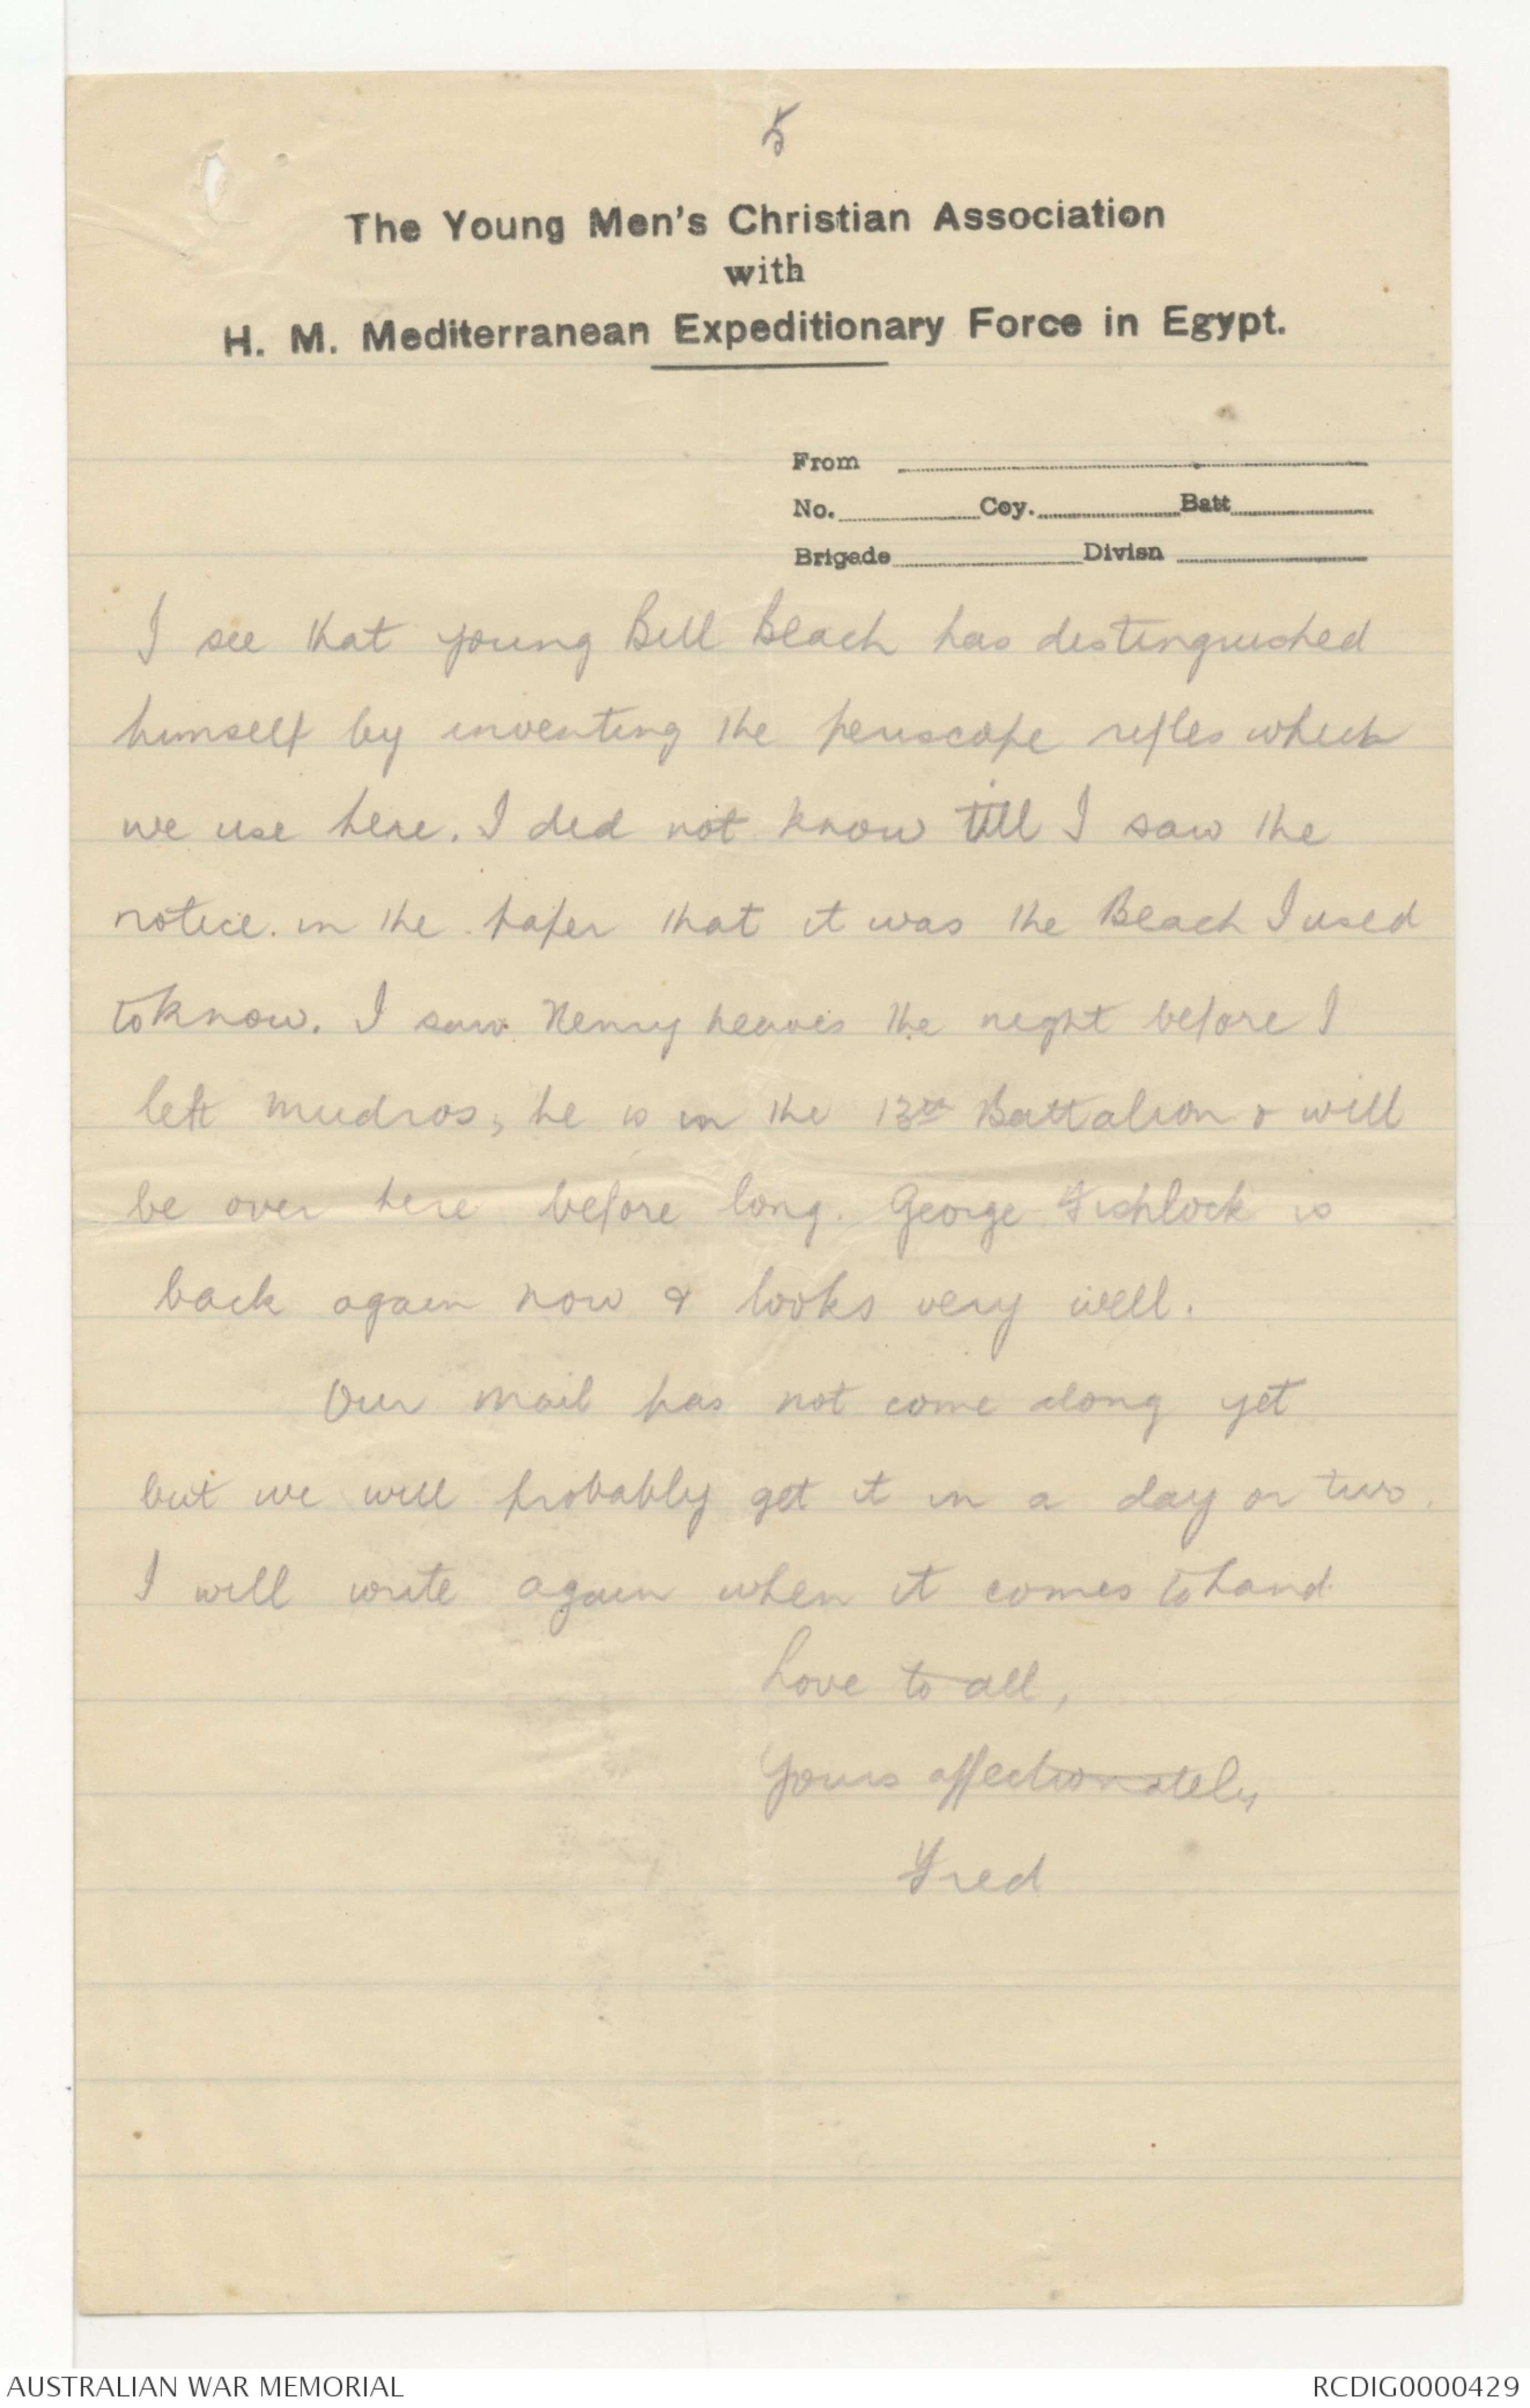 5
The Young Men's Christian Association
with
H. M. Mediterranean Expeditionary Force in Egypt.
From
No. Coy. Batt
Brigade Divisn
I see that young Bill Beach has distinguished
himself by inventing the periscope rifles which
we use here. I did not know till I saw the
notice in the paper that it was the Beach I used
to know. I saw Henry the night before I
left Mudros, he is in the 13th Battalion & will
be over here before long. George Fishlock is
back again now & looks very well.
Our mail has not come along yet
but we will probably get it in a day or two.
I will write again when it comes to hand.
Love to all,
Yours affectionately
Fred
AUSTRALIAN WAR MEMORIAL
RCDIG0000429